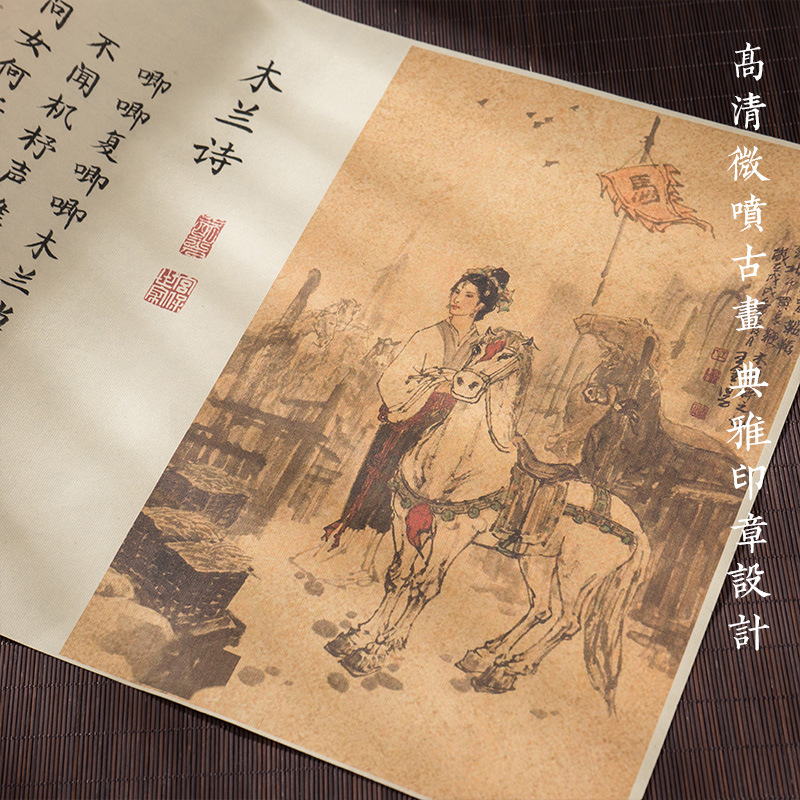 高清微噴古畫 典雅印章設計
馬
木兰诗
唧唧复唧唧木兰当
不闻机杼声惟
问女何